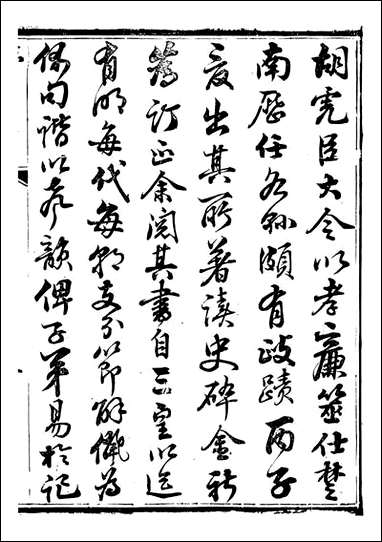 胡霓臣大令以孝廉筮仕楚
南歷任各縣頗有政蹟丙子
夏出其所著讀史碎金新
箋訂正余閱其書自三皇以迄
有明每代每朝支分節解儷為
偶句諧以本韻俾子弟易於記